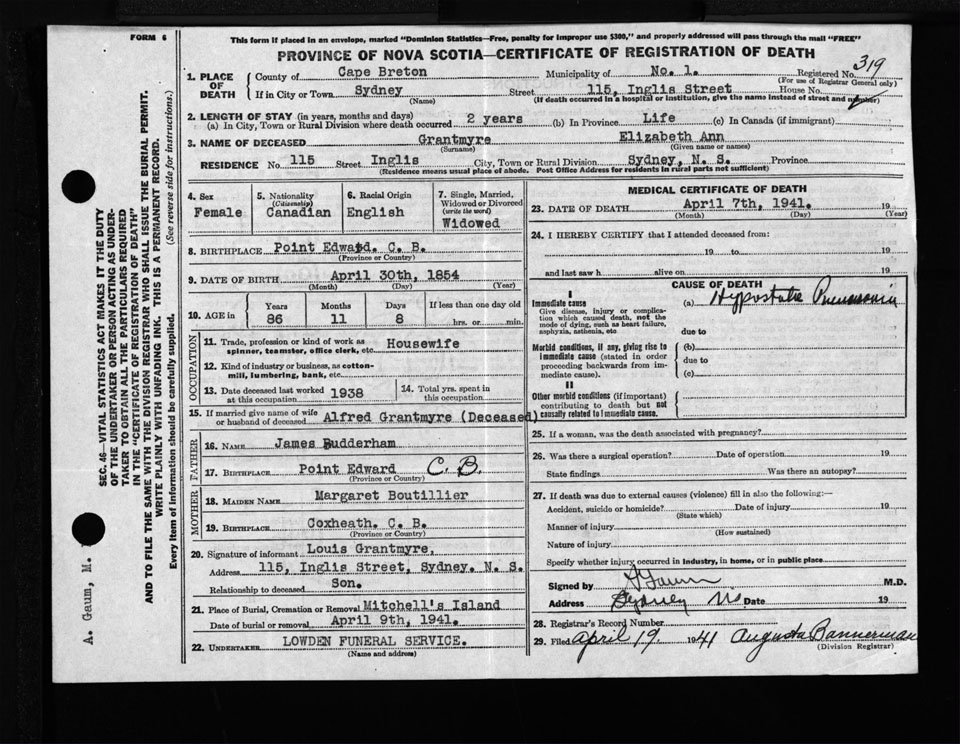 FORM 6
This form if placed in an envelope, marked "Dominion Statistics—Free, penalty for improper use $300," and properly addressed will pass through the mail "FREE"
PROVINCE OF NOVA SCOTIA—CERTIFICATE OF REGISTRATION OF DEATH
1. PLACE OF DEATH County of Cape Breton Municipality of No. 1. Registered No. 319
(For use of Registrar General only)
If in City or Town Sydney Street 115, Inglis Street House No.
(Name) (If death occurred in a hospital or institution, give the name instead of street and number)
2. LENGTH OF STAY (in years, months and days)
(a) In City, Town or Rural Division where death occurred 2 years (b) In Province Life (c) In Canada (if immigrant)
3. NAME OF DECEASED Grantmyre Elizabeth Ann
(Surname) (Given name or names)
RESIDENCE No. 115 Street Inglis City, Town or Rural Division Sydney, N. S. Province
(Residence means usual place of abode. Post Office Address for residents in rural parts not sufficient)
4. Sex Female
5. Nationality (Citizenship) Canadian
6. Racial Origin English
7. Single, Married, Widowed or Divorced (write the word) Widowed
8. BIRTHPLACE Point Edward. C. B.
(Province or Country)
9. DATE OF BIRTH April 30th, 1854
(Month) (Day) (Year)
10. AGE in Years Months Days If less than one day old
86 11 8 hrs. or min.
OCCUPATION
11. Trade, profession or kind of work as spinner, teamster, office clerk, etc. Housewife
12. Kind of industry or business, as cotton-mill, lumbering, bank, etc.
13. Date deceased last worked at this occupation 1938
14. Total yrs. spent in this occupation
15. If married give name of wife or husband of deceased Alfred Grantmyre (Deceased)
FATHER
16. NAME James Rudderham
17. BIRTHPLACE Point Edward C. B.
(Province or Country)
MOTHER
18. MAIDEN NAME Margaret Boutillier
19. BIRTHPLACE Coxheath. C. B.
(Province or Country)
20. Signature of informant Louis Grantmyre,
Address 115, Inglis Street, Sydney. N. S.
Relationship to deceased Son.
21. Place of Burial, Cremation or Removal Mitchell's Island
Date of burial or removal April 9th, 1941.
22. UNDERTAKER LOWDEN FUNERAL SERVICE.
(Name and address)
MEDICAL CERTIFICATE OF DEATH
23. DATE OF DEATH April 7th, 1941. 19
(Month) (Day) (Year)
24. I HEREBY CERTIFY that I attended deceased from:
19 to 19
and last saw h alive on 19
CAUSE OF DEATH
I
Immediate cause (a) Hypostatic Pneumonia
Give disease, injury or complication which caused death, not the mode of dying, such as heart failure, asphyxia, asthenia, etc
due to
Morbid conditions, if any, giving rise to immediate cause (stated in order proceeding backwards from immediate cause).
(b)
due to
(c)
II
Other morbid conditions (if important) contributing to death but not causally related to immediate cause.
25. If a woman, was the death associated with pregnancy?
26. Was there a surgical operation? Date of operation 19
State findings Was there an autopsy?
27. If death was due to external causes (violence) fill in also the following:—
Accident, suicide or homicide? Date of injury 19
(State which)
Manner of injury
(How sustained)
Nature of injury
Specify whether injury occurred in industry, in home, or in public place
Signed by M.D.
Address Sydney NS Date 19
28. Registrar's Record Number
29. Filed April 19, 1941 Augusta Bannerman
(Division Registrar)
SEC. 46—VITAL STATISTICS ACT MAKES IT THE DUTY
OF THE UNDERTAKER OR PERSON ACTING AS UNDER-
TAKER TO OBTAIN ALL THE PARTICULARS REQUIRED
IN THE "CERTIFICATE OF REGISTRATION OF DEATH"
AND TO FILE THE SAME WITH THE DIVISION REGISTRAR WHO SHALL ISSUE THE BURIAL PERMIT.
WRITE PLAINLY WITH UNFADING INK. THIS IS A PERMANENT RECORD.
Every item of information should be carefully supplied. (See reverse side for instructions.)
A. Gaum, M.